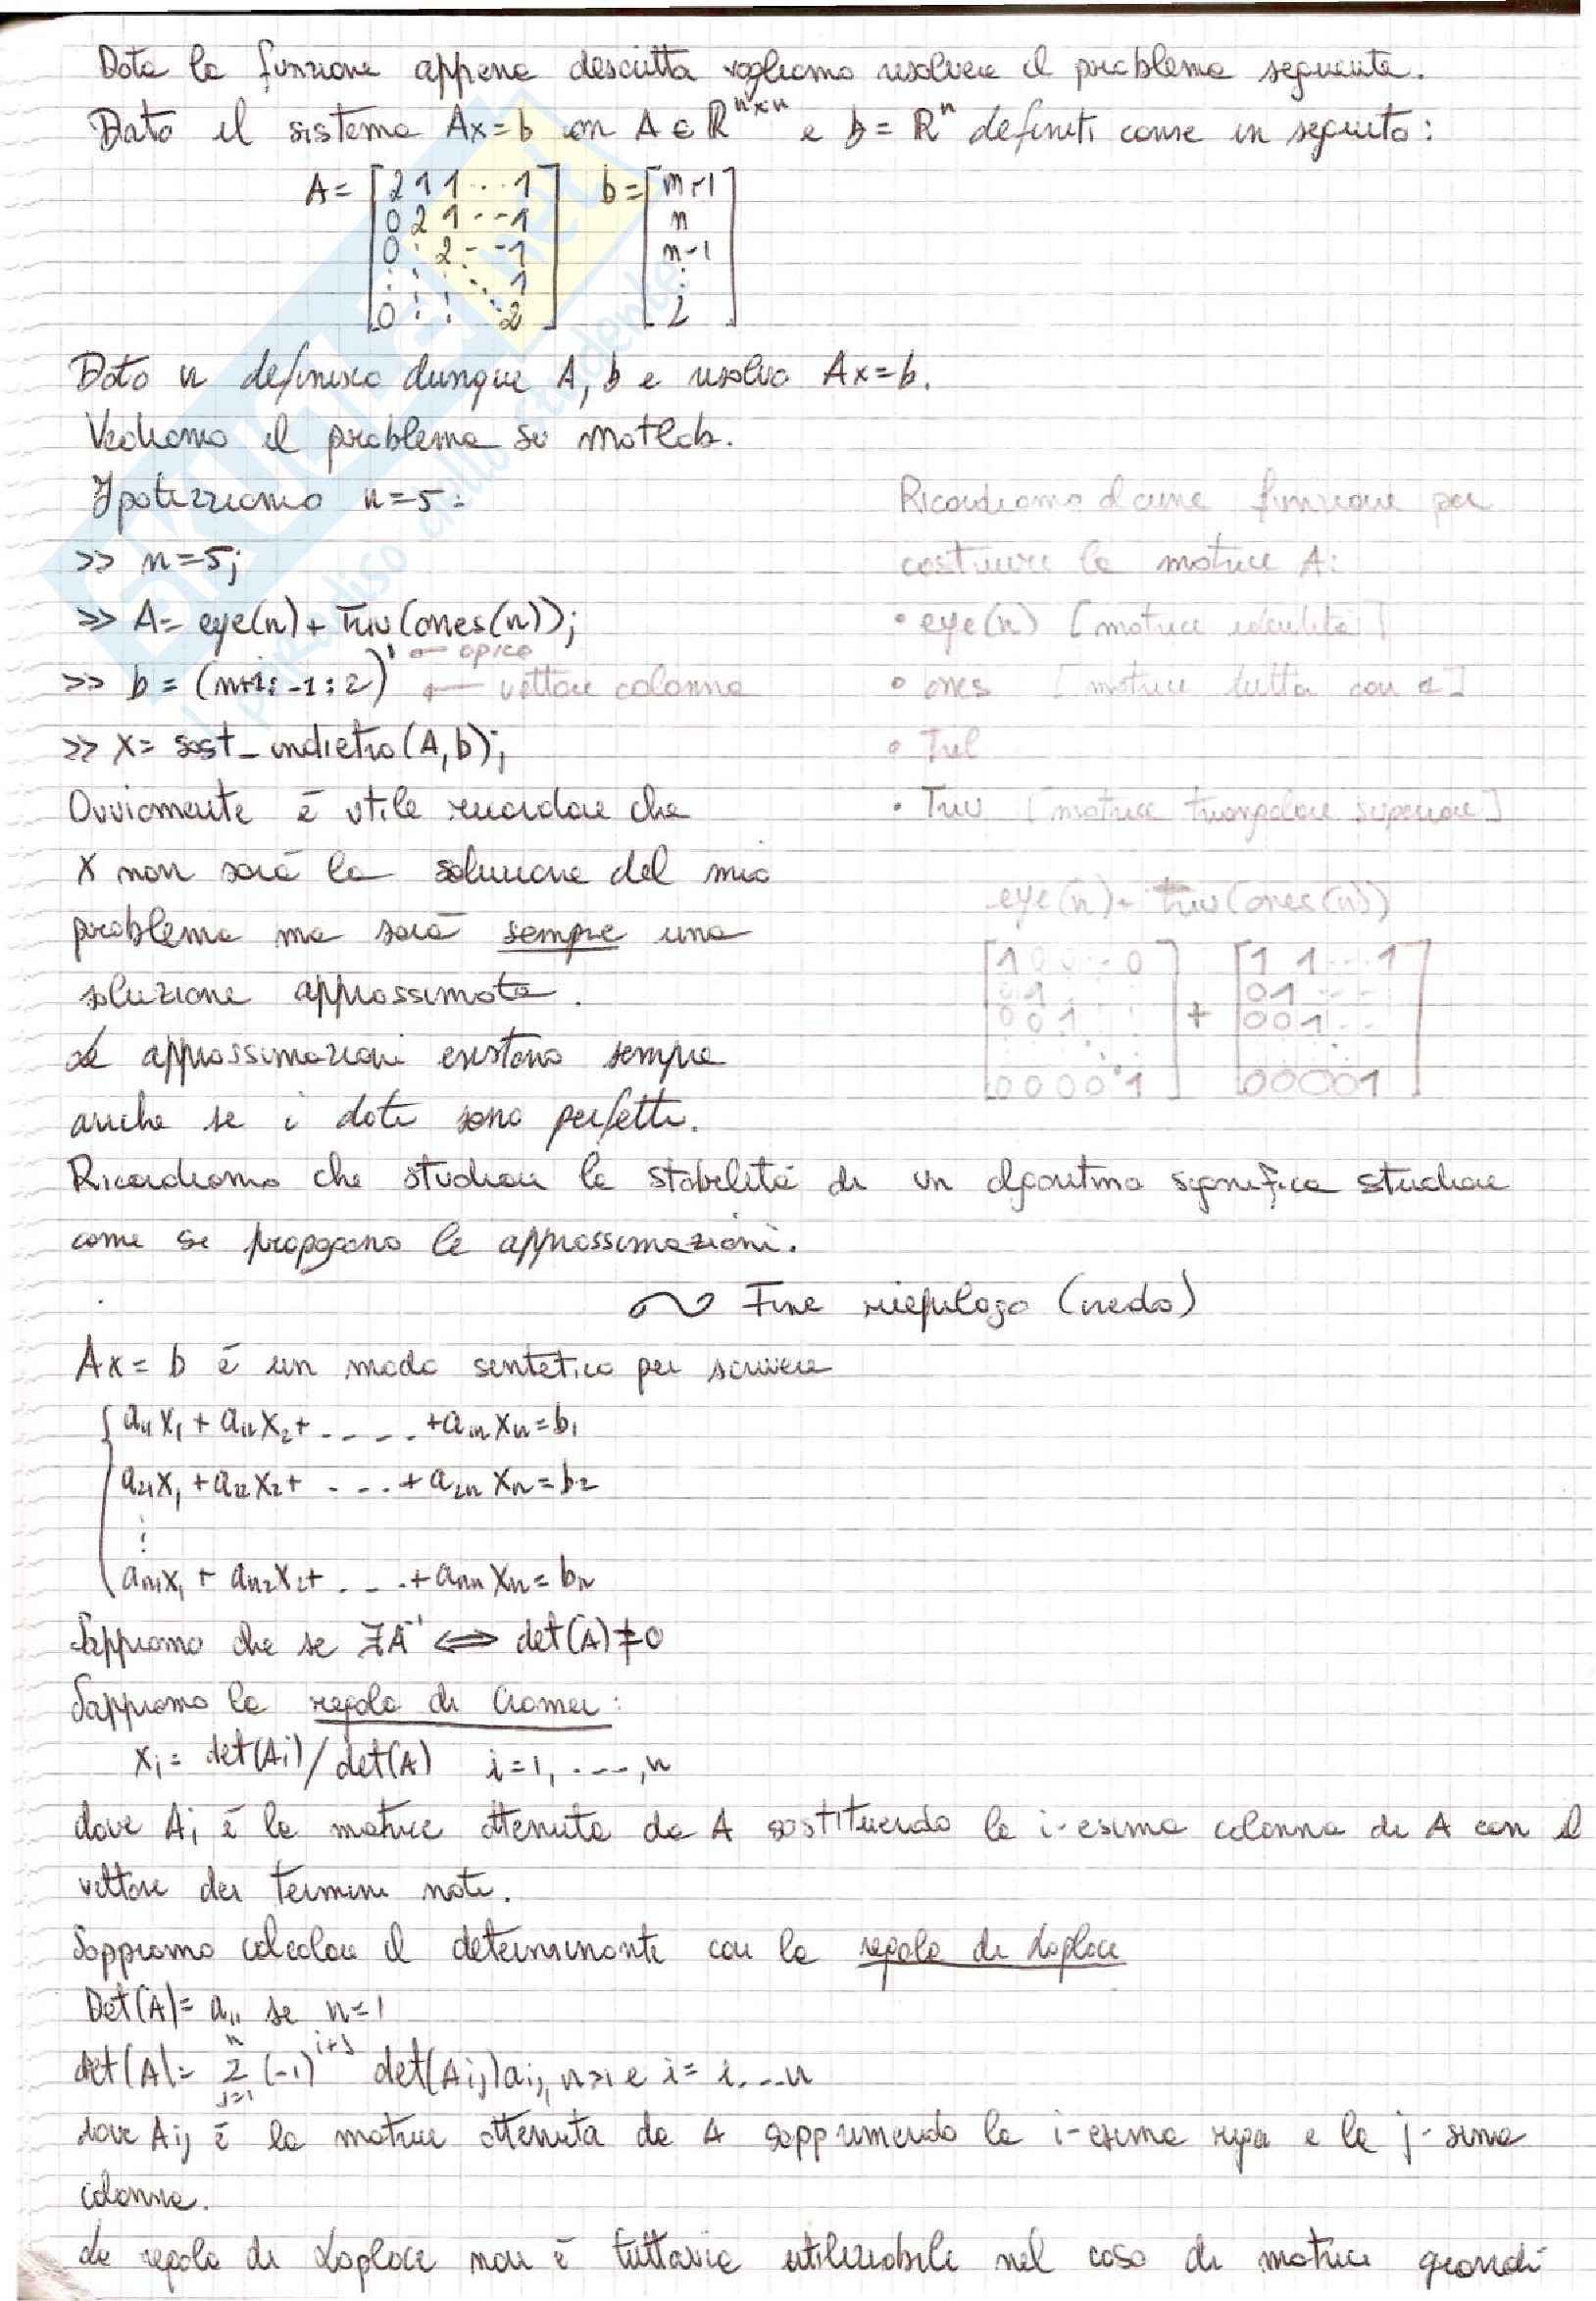 Data la funzione appena descritta vogliamo risolvere il problema seguente.
Dato il sistema Ax=b con A ∈ ℝ^{n×n} e b = ℝ^n definiti come in seguito:
A = [2 1 1 ... 1; 0 2 1 -- 1; 0 : 2 - - 1; : : : ⋱ 1; 0 : : ⋱ 2] b = [n+1; n; n-1; :; 2]
Dato n definisco dunque A, b e risolvo Ax=b.
Vediamo il problema su Matlab.
Ipotizziamo n=5:
>> n=5;
>> A= eye(n)+ Triu(ones(n));
>> b = (n+1:-1:2)' ← apice
← vettore colonna
>> x= sost_indietro(A,b);
Ovviamente è utile ricordare che
x non sarà la soluzione del mio
problema ma sarà sempre una
soluzione approssimata.
Le approssimazioni esistono sempre
anche se i dati sono perfetti.
Ricordiamo alcune funzione per
costruire la matrice A:
• eye(n) [matrice identità]
• ones [matrice tutta con 1]
• Tril
• Triu [matrice triangolare superiore]
eye(n)+ triu(ones(n))
[1 0 0 - 0; 0 1; 0 0 1; 0 0 0 0 1] + [1 1 ... 1; 0 1 - - -; 0 0 1 ..; 0 0 0 0 1]
Ricordiamo che studiare la stabilità di un algoritmo significa studiare
come si propagano le approssimazioni.
Fine riepilogo (credo)
Ax = b è un modo sintetico per scrivere
{ a₁₁x₁ + a₁₂x₂+ ..... +a₁ₙxₙ=b₁
a₂₁x₁ +a₂₂x₂+ .... + a₂ₙxₙ=b₂
⋮
aₙ₁x₁ + aₙ₂x₂+ ....+aₙₙxₙ=bₙ
Sappiamo che se ∃A⁻¹ ⟺ det(A)≠0
Sappiamo la regola di Cramer:
xᵢ= det(Aᵢ)/det(A) i=1, ...., n
dove Aᵢ è la matrice ottenuta da A sostituendo la i-esima colonna di A con il
vettore dei termini noti.
Sappiamo calcolare il determinante con la regola di Laplace
Det(A)= a₁₁ se n=1
det(A)= Σ_{j=1}^{n} (-1)^{i+j} det(Aᵢⱼ)aᵢⱼ, n>1 e i= 1...n
dove Aᵢⱼ è la matrice ottenuta da A sopprimendo la i-esima riga e la j-sima
colonna.
La regola di Laplace non è tuttavia utilizzabile nel caso di matrici grandi